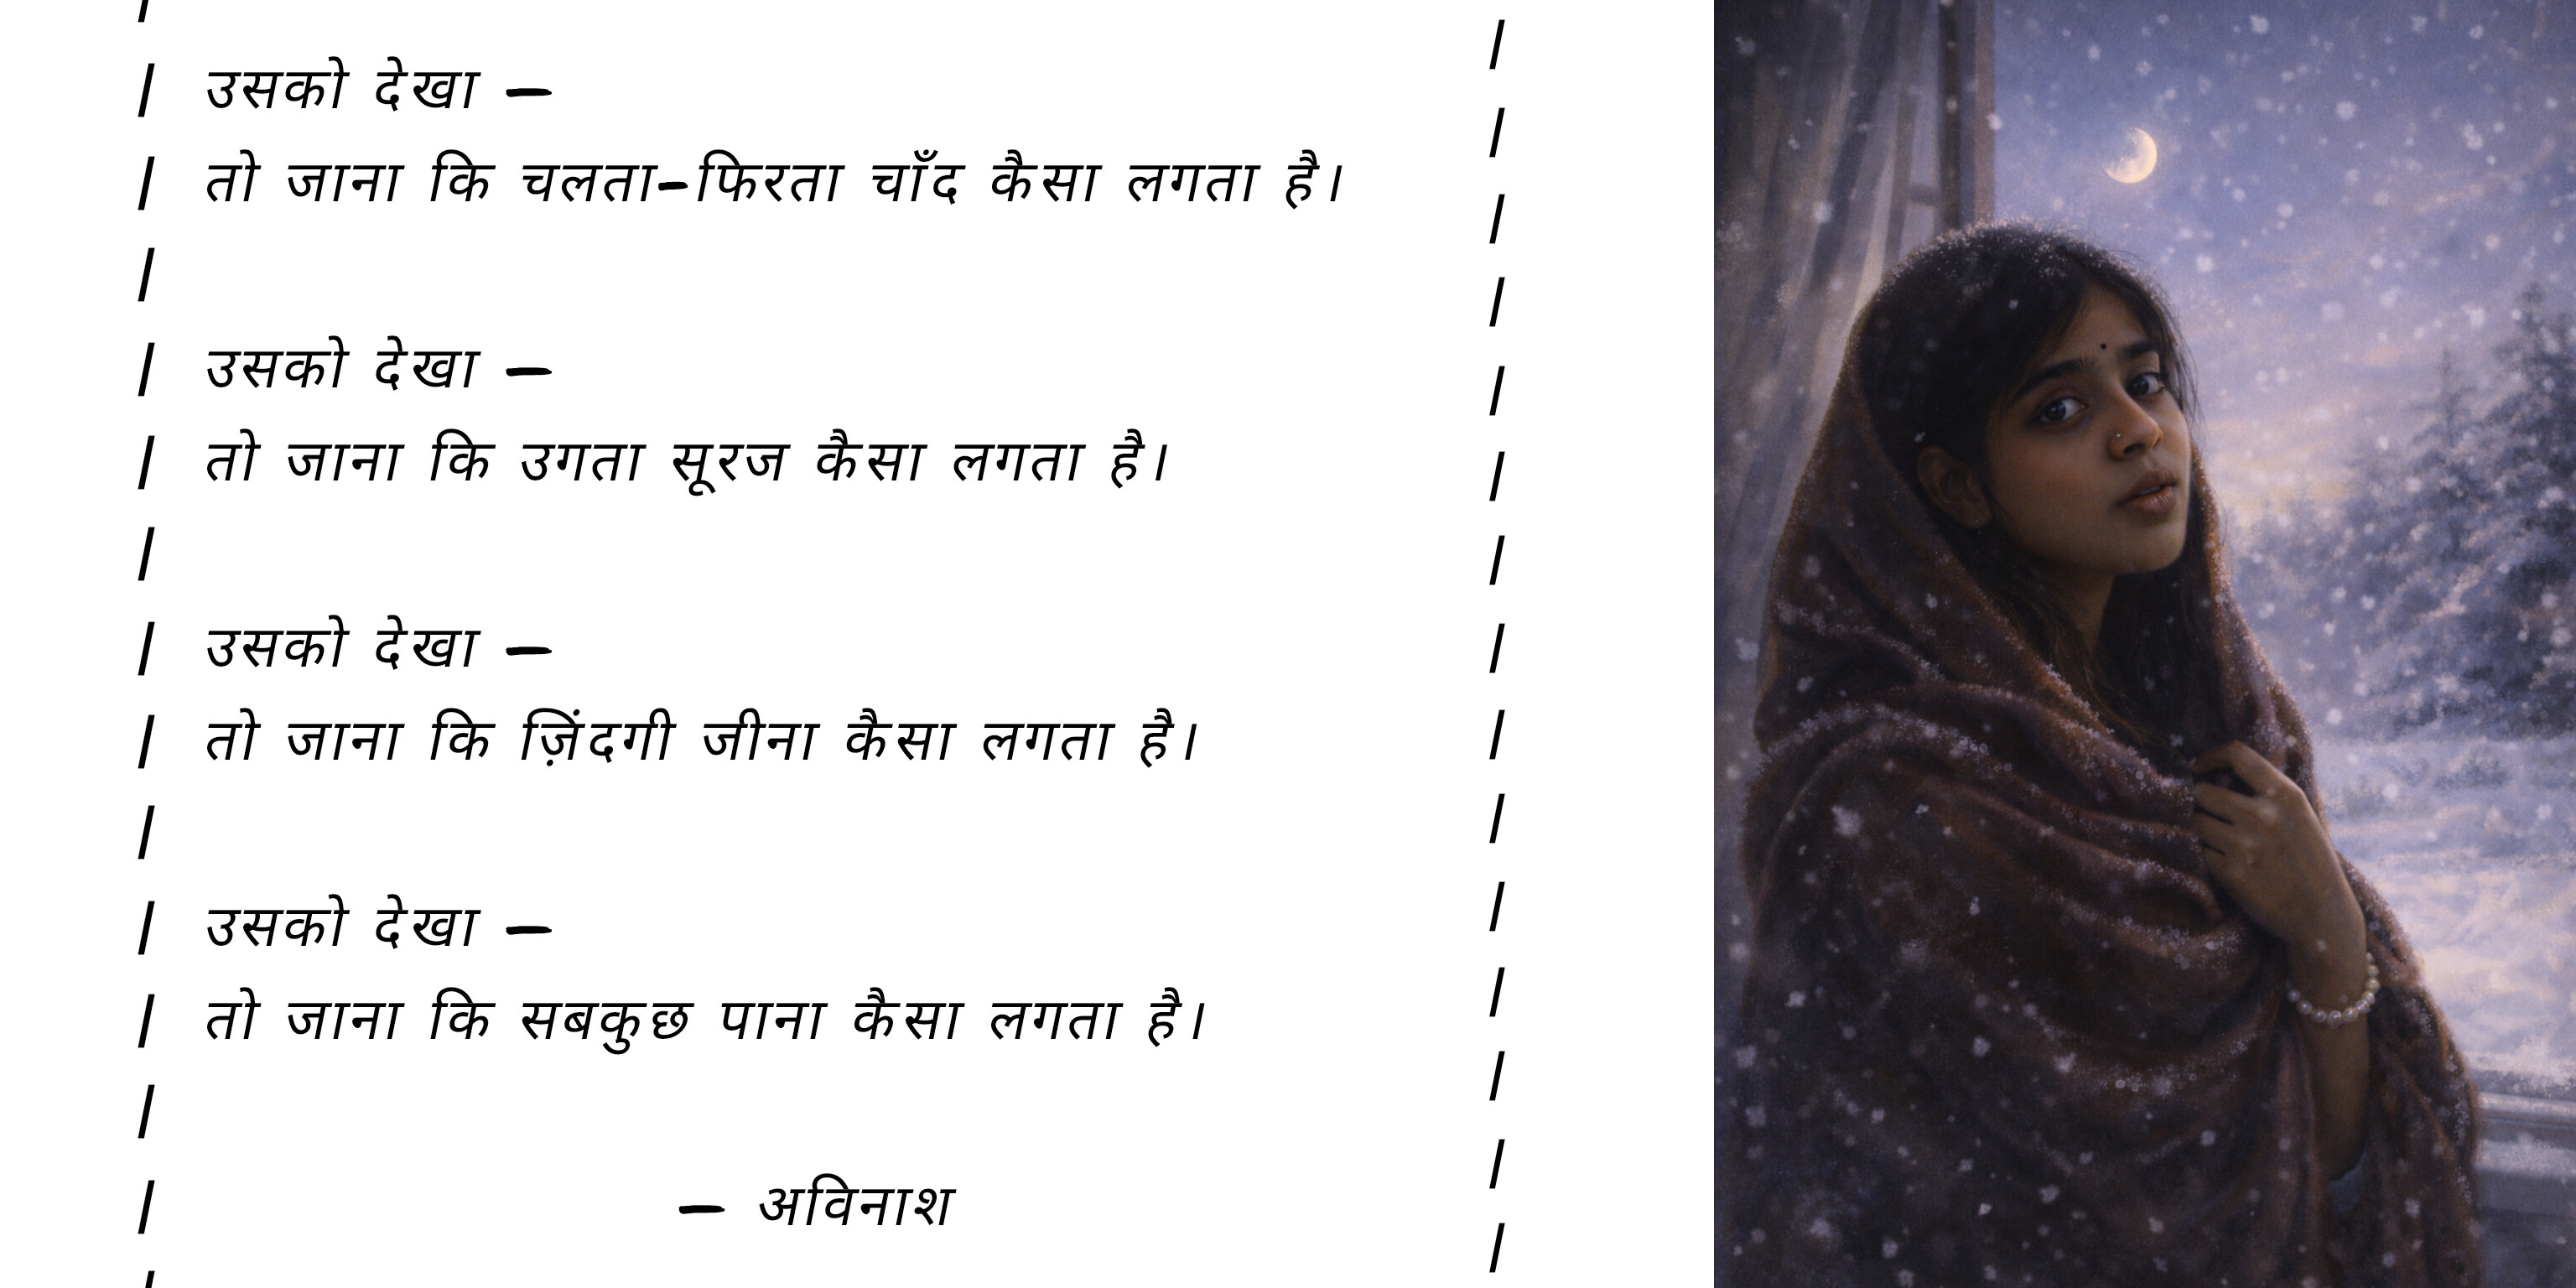 उसको देखा –
तो जाना कि चलता-फिरता चाँद कैसा लगता है।
उसको देखा –
तो जाना कि उगता सूरज कैसा लगता है।
उसको देखा –
तो जाना कि ज़िंदगी जीना कैसा लगता है।
उसको देखा –
तो जाना कि सबकुछ पाना कैसा लगता है।
– अविनाश